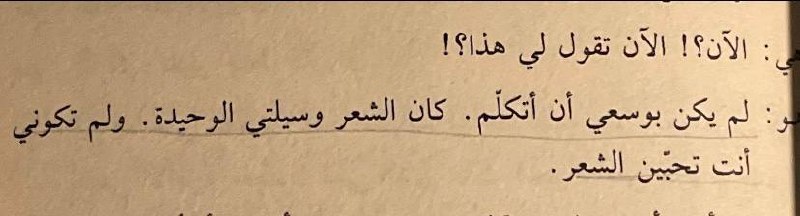 هي: الآن؟! الآن تقول لي هذا؟!
هو: لم يكن بوسعي أن أتكلّم. كان الشعر وسيلتي الوحيدة. ولم تكوني
أنت تحبّين الشعر.